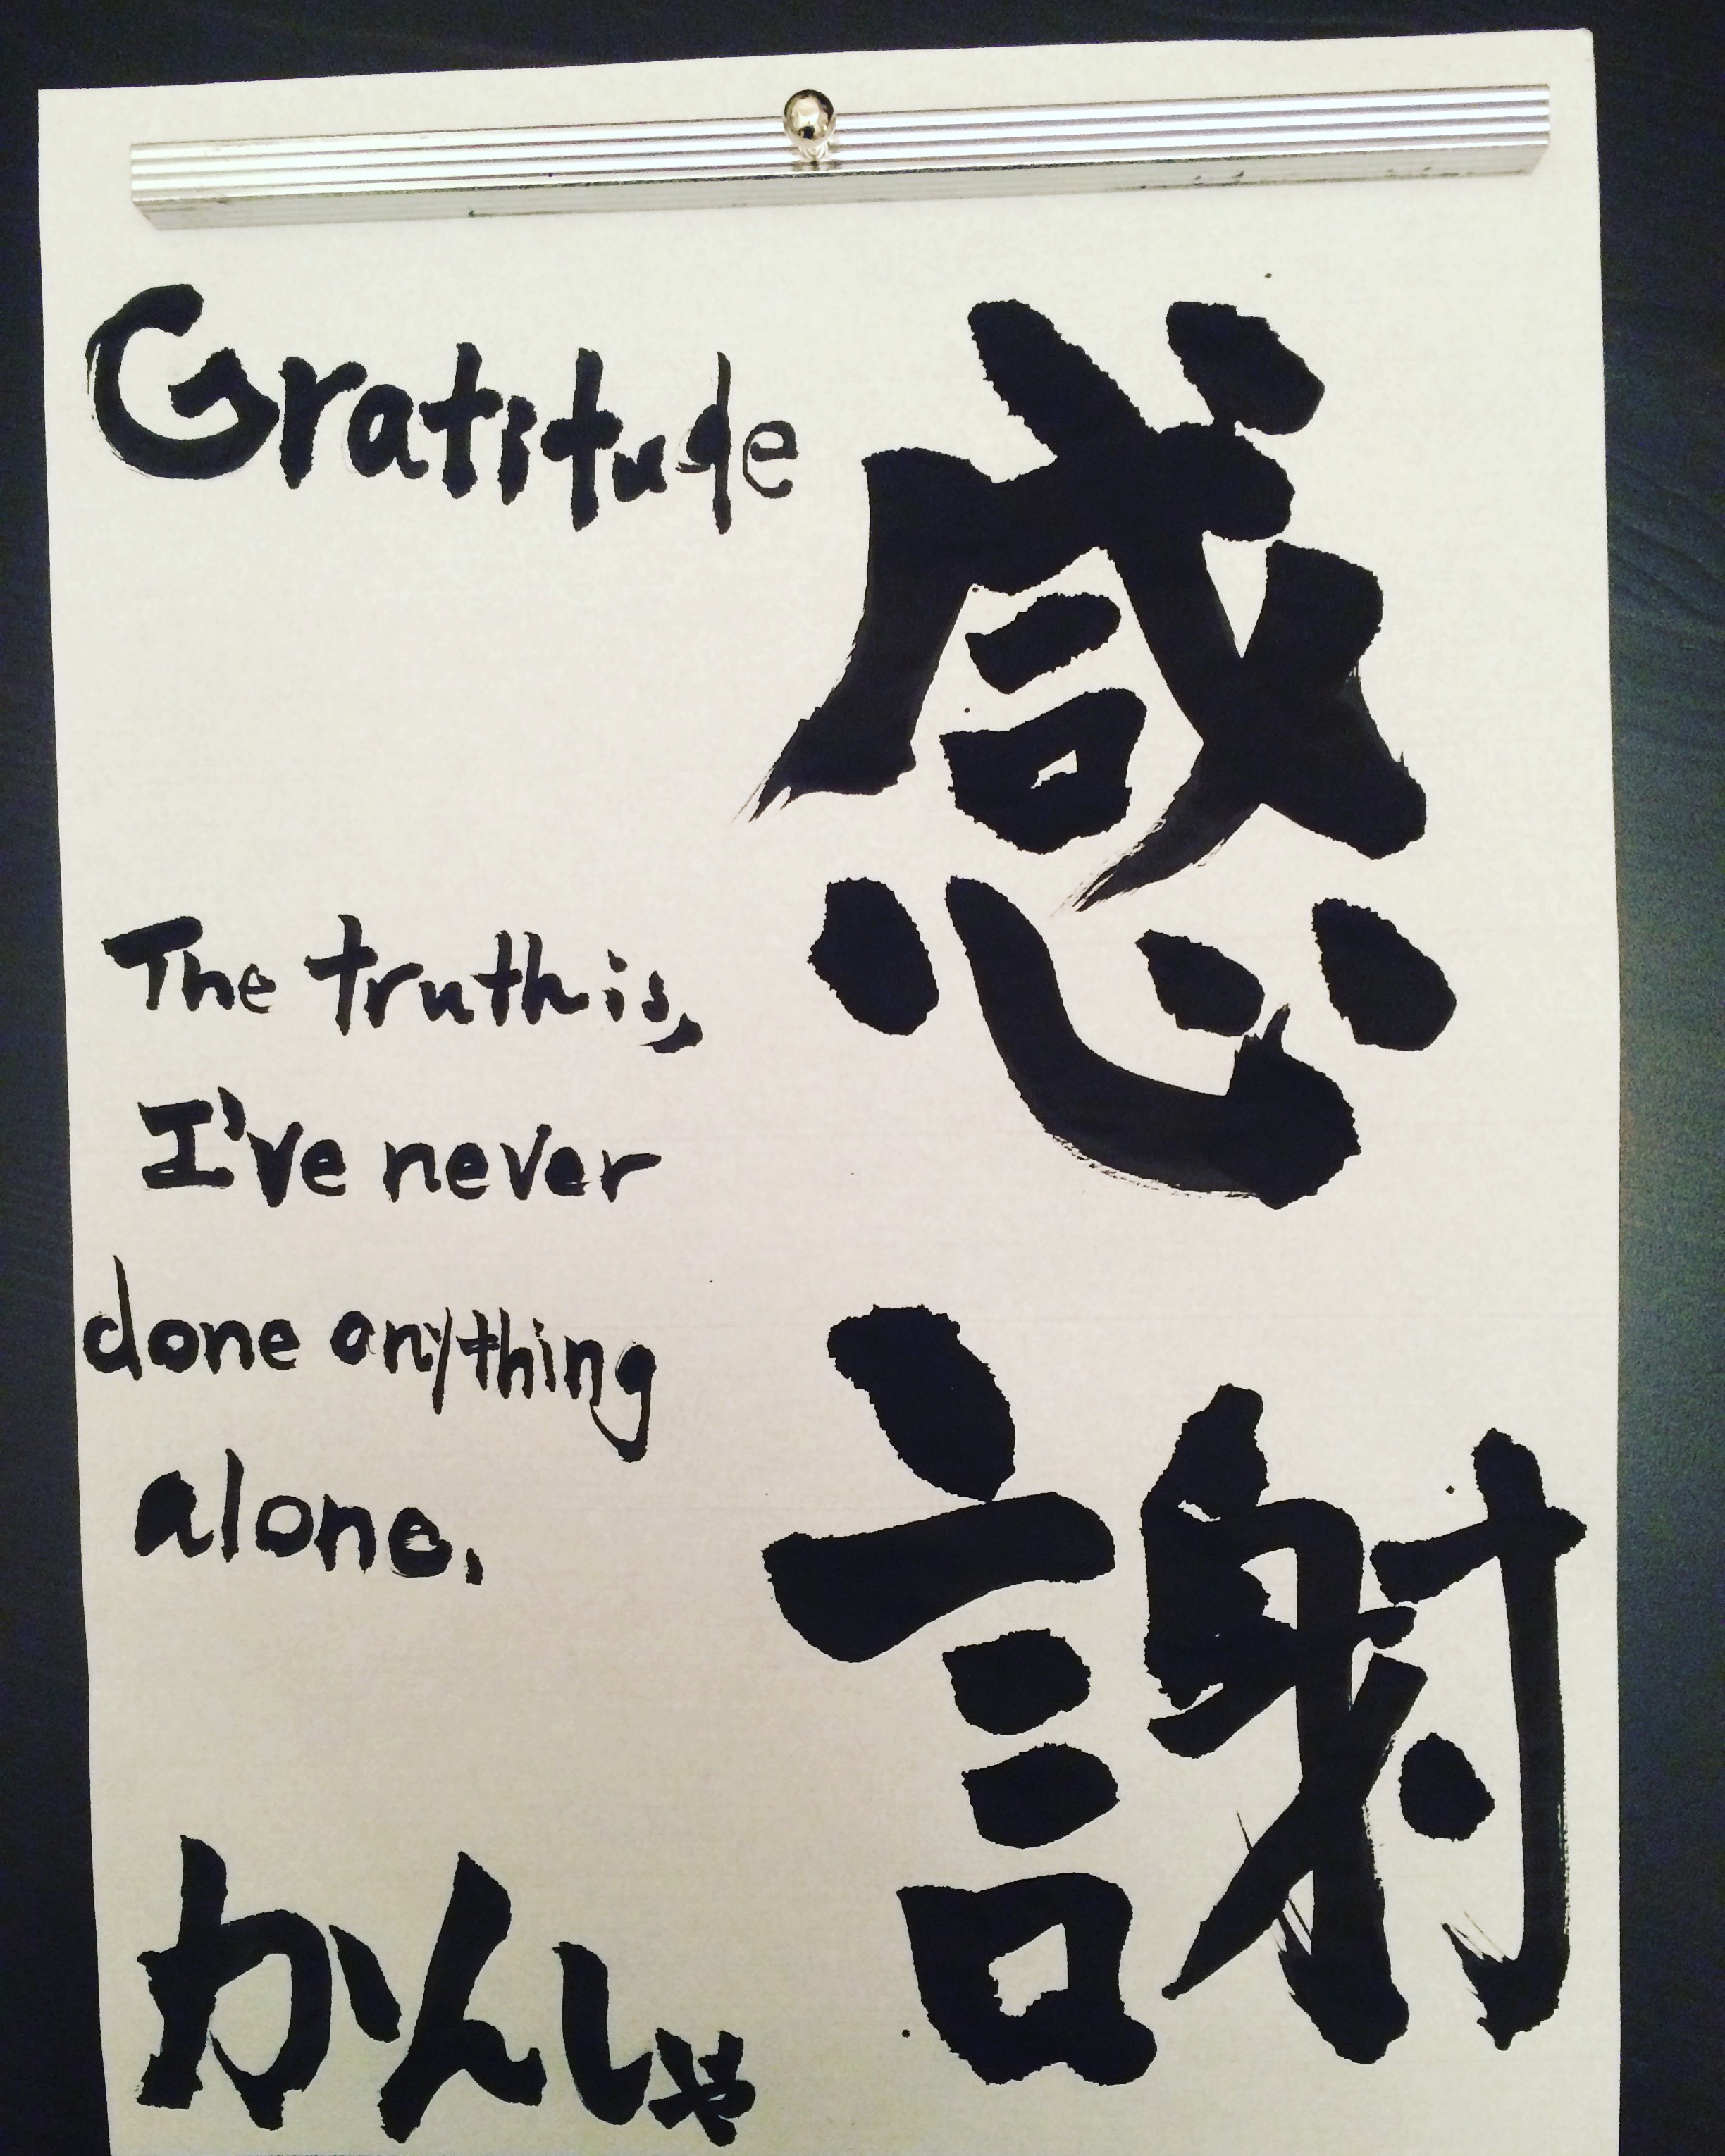 Gratitude
感謝
The truth is,
I've never
done anything
alone.
かんしゃ